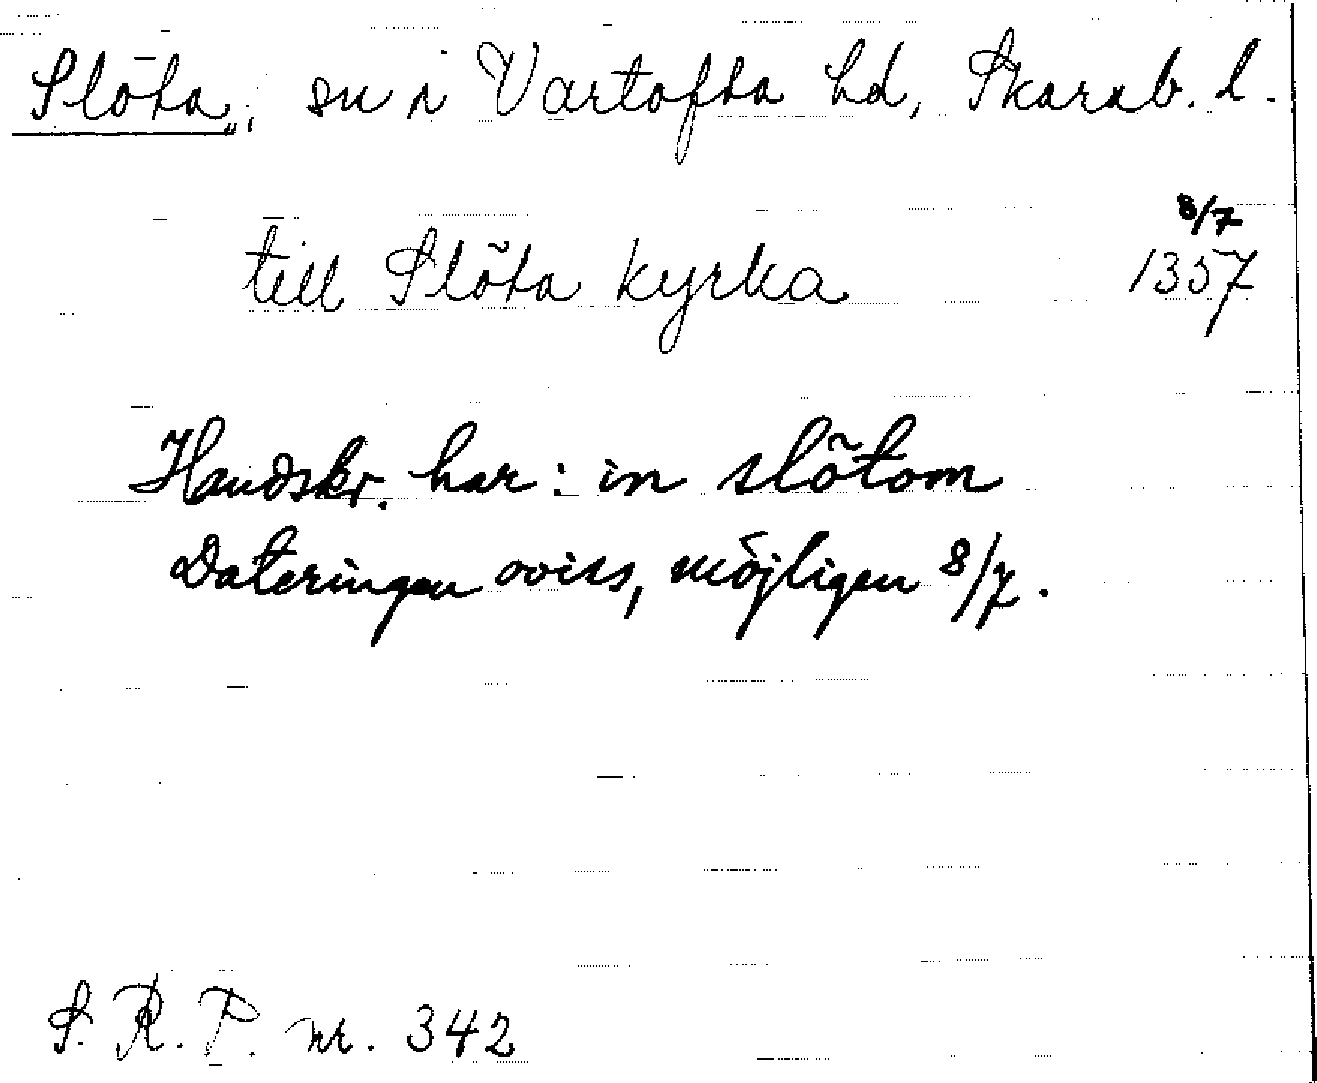 Slöta, sn i Vartofta hd, Skarab. l.
8/7
till Slöta kyrka 1357
Handskr. har: in slötom
Dateringen oviss, möjligen 8/7.
S. R. P. nr. 342